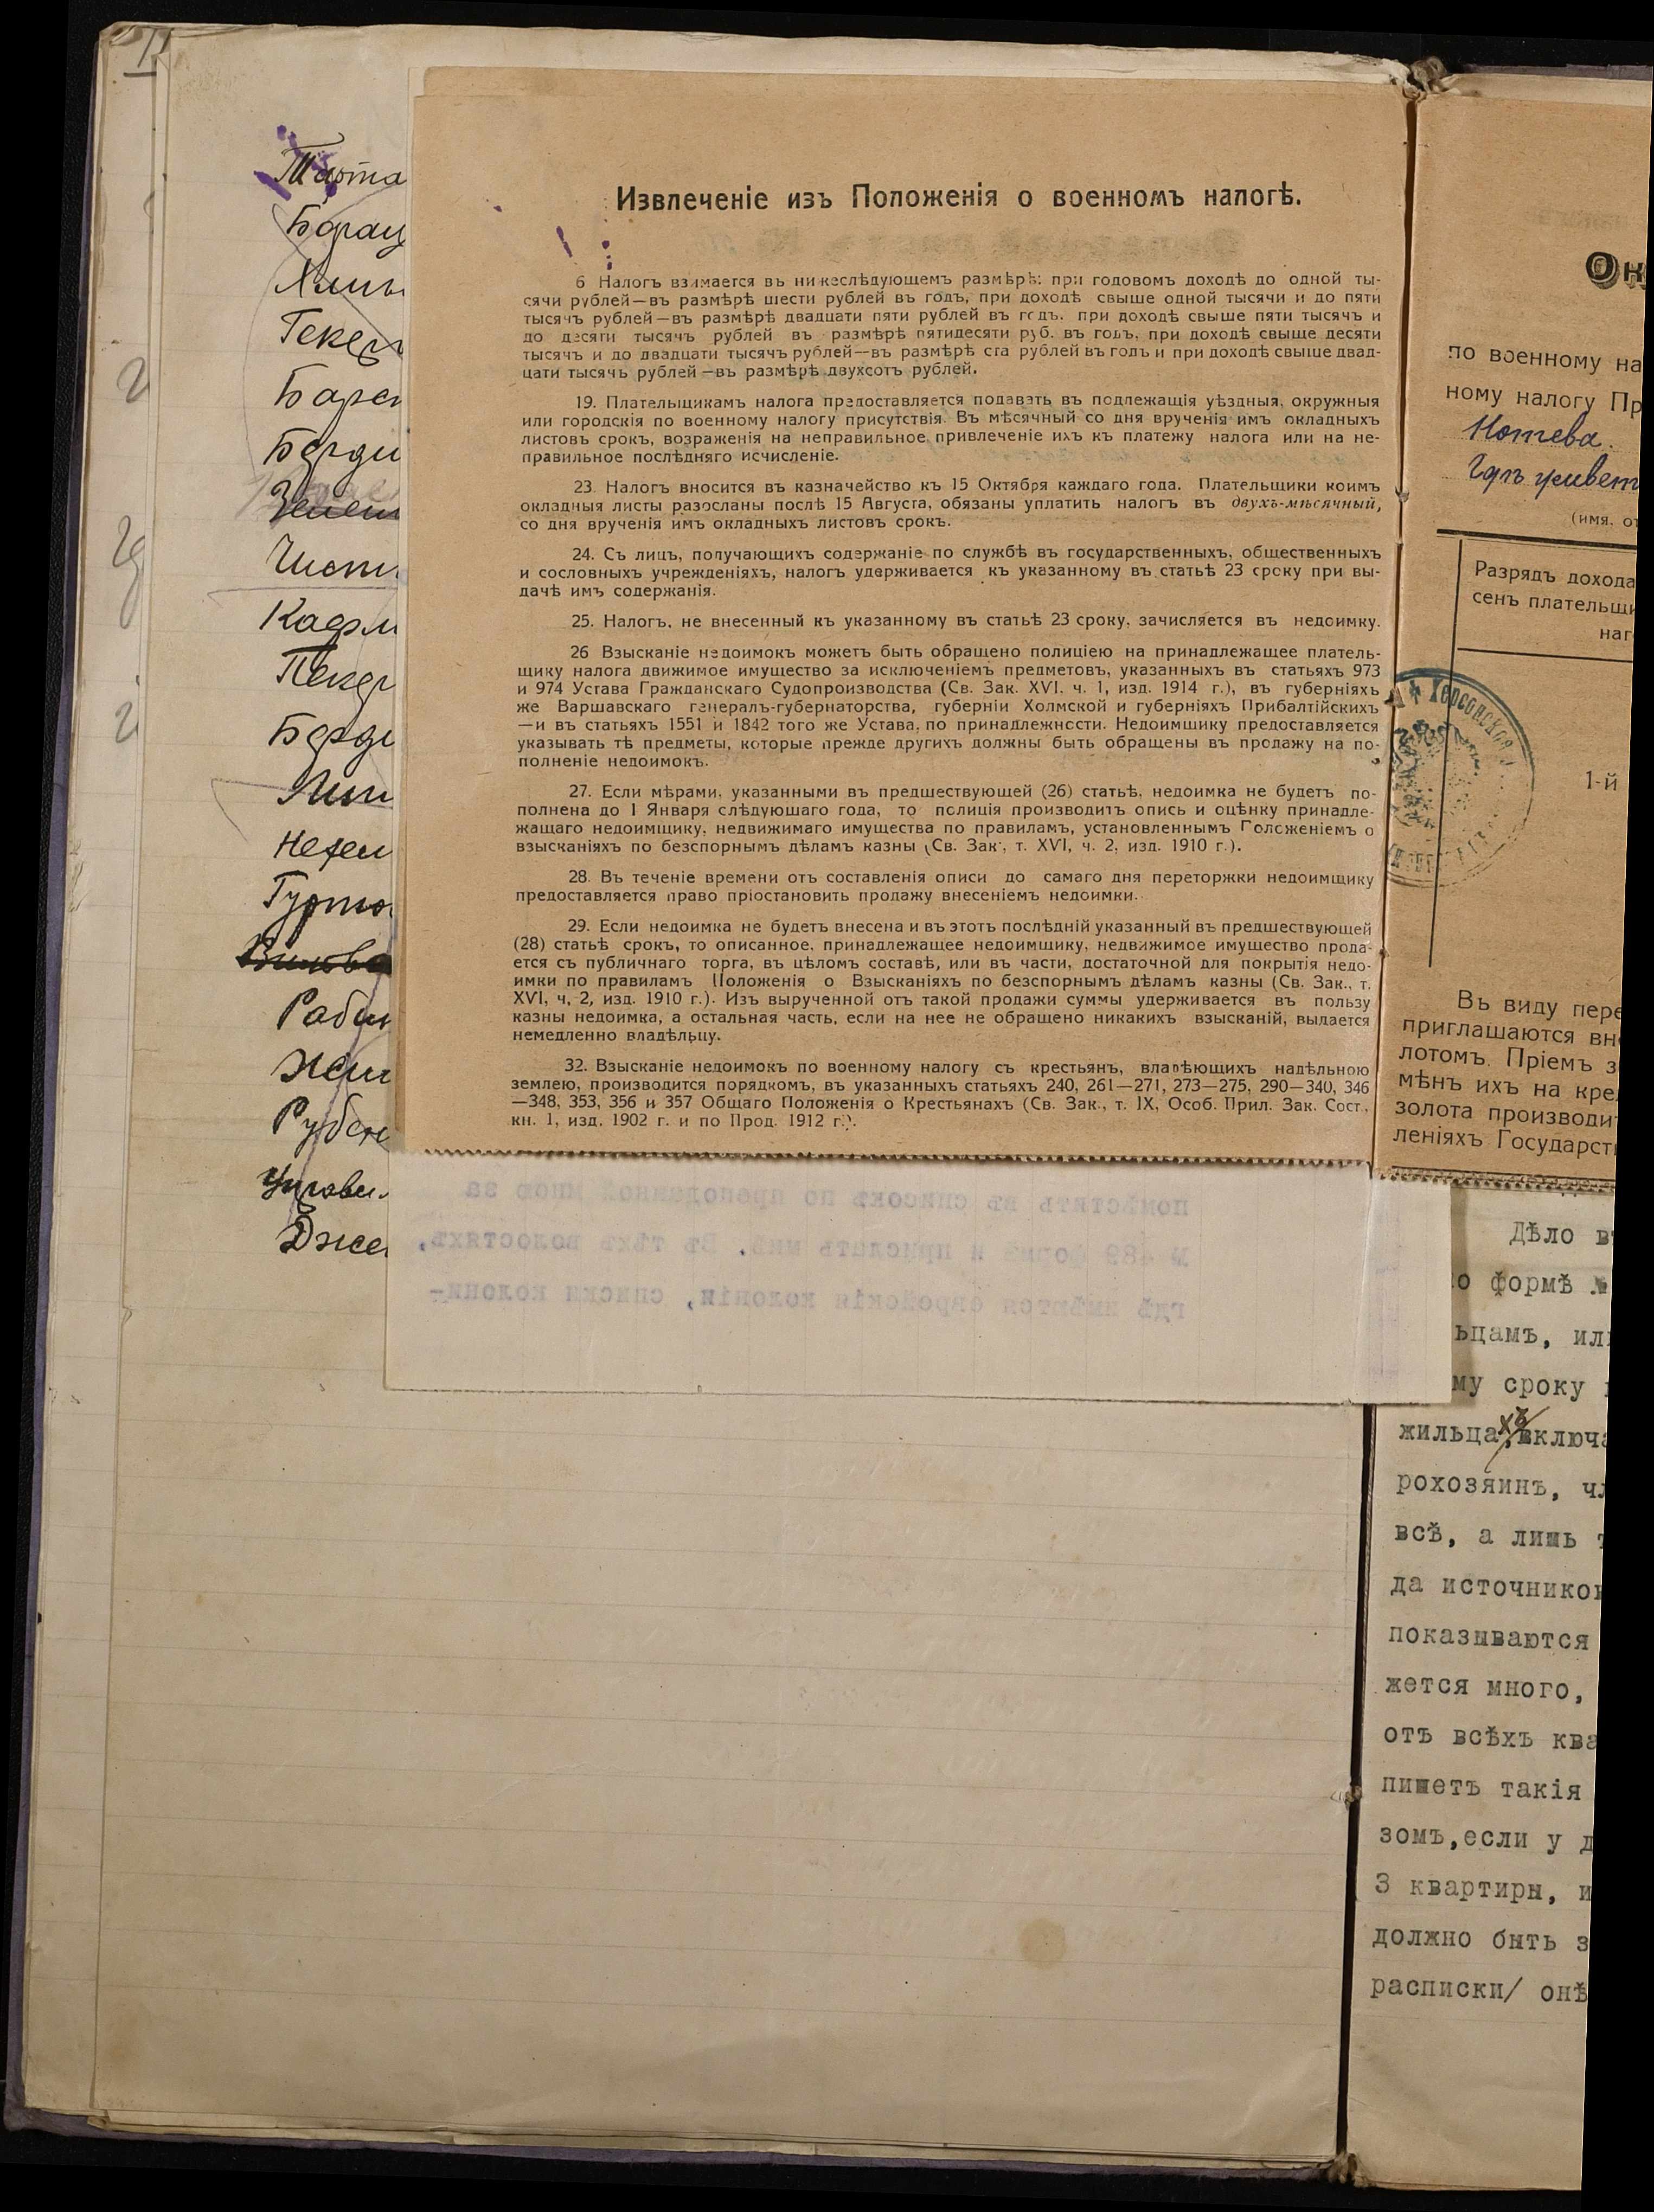 Извлеченіе изъ Положенія о военномъ налогѣ.
6 Налогъ взимается въ нижеслѣдующемъ размѣрѣ: при годовомъ доходѣ до одной ты-
сячи рублей—въ размѣрѣ шести рублей въ годъ, при доходѣ свыше одной тысячи и до пяти
тысячъ рублей—въ размѣрѣ двадцати пяти рублей въ годъ. при доходѣ свыше пяти тысячъ и
до десяти тысячъ рублей въ размѣрѣ пятидесяти руб. въ годъ, при доходѣ свыше десяти
тысячъ и до двадцати тысячъ рублей—въ размѣрѣ ста рублей въ годъ и при доходѣ свыше двад-
цати тысячъ рублей—въ размѣрѣ двухсотъ рублей.
19. Плательщикамъ налога предоставляется подавать въ подлежащія уѣздныя, окружныя
или городскія по военному налогу присутствія. Въ мѣсячный со дня врученія имъ окладныхъ
листовъ срокъ, возраженія на неправильное привлеченіе ихъ къ платежу налога или на не-
правильное послѣдняго исчисленіе.
23. Налогъ вносится въ казначейство къ 15 Октября каждаго года. Плательщики коимъ
окладныя листы разосланы послѣ 15 Августа, обязаны уплатить налогъ въ двухъ-мѣсячный,
со дня врученія имъ окладныхъ листовъ срокъ.
24. Съ лицъ, получающихъ содержаніе по службѣ въ государственныхъ, общественныхъ
и сословныхъ учрежденіяхъ, налогъ удерживается къ указанному въ статьѣ 23 сроку при вы-
дачѣ имъ содержанія.
25. Налогъ, не внесенный къ указанному въ статьѣ 23 сроку, зачисляется въ недоимку.
26 Взысканіе недоимокъ можетъ быть обращено полиціею на принадлежащее платель-
щику налога движимое имущество за исключеніемъ предметовъ, указанныхъ въ статьяхъ 973
и 974 Устава Гражданскаго Судопроизводства (Св. Зак. XVI. ч. 1, изд. 1914 г.), въ губерніяхъ
же Варшавскаго генералъ-губернаторства, губерніи Холмской и губерніяхъ Прибалтійскихъ
—и въ статьяхъ 1551 и 1842 того же Устава, по принадлежности. Недоимщику предоставляется
указывать тѣ предметы, которые прежде другихъ должны быть обращены въ продажу на по-
полненіе недоимокъ.
27. Если мѣрами, указанными въ предшествующей (26) статьѣ, недоимка не будетъ по-
полнена до 1 Января слѣдующаго года, то полиція производитъ опись и оцѣнку принадле-
жащаго недоимщику, недвижимаго имущества по правиламъ, установленнымъ Положеніемъ о
взысканіяхъ по безспорнымъ дѣламъ казны (Св. Зак., т. XVI, ч. 2, изд. 1910 г.).
28. Въ теченіе времени отъ составленія описи до самаго дня переторжки недоимщику
предоставляется право пріостановить продажу внесеніемъ недоимки.
29. Если недоимка не будетъ внесена и въ этотъ послѣдній указанный въ предшествующей
(28) статьѣ срокъ, то описанное, принадлежащее недоимщику, недвижимое имущество прода-
ется съ публичнаго торга, въ цѣломъ составѣ, или въ части, достаточной для покрытія недо-
имки по правиламъ Положенія о Взысканіяхъ по безспорнымъ дѣламъ казны (Св. Зак., т.
XVI, ч. 2, изд. 1910 г.). Изъ вырученной отъ такой продажи суммы удерживается въ пользу
казны недоимка, а остальная часть, если на нее не обращено никакихъ взысканій, выдается
немедленно владѣльцу.
32. Взысканіе недоимокъ по военному налогу съ крестьянъ, владѣющихъ надѣльною
землею, производится порядкомъ, въ указанныхъ статьяхъ 240, 261—271, 273—275, 290—340, 346
—348, 353, 356 и 357 Общаго Положенія о Крестьянахъ (Св. Зак., т. IX, Особ. Прил. Зак. Сост.,
кн. 1, изд. 1902 г. и по Прод. 1912 г.).
помѣстить въ списокъ по преподанной мною за
№ 489 форма и прислать мнѣ. Въ тѣхъ волостяхъ,
гдѣ имѣются еврейскія колоніи, списки колони-
Борац
Текер
Барс
Берди
Чист
Кафм
Пекер
Берди
Гурто
Раби
Рубен
Дже
Ок
по военному на
ному налогу Пр
Нотева.
(имя. от
Разрядъ дохода
сенъ плательщи
наг
Херсонской
1-й
Въ виду пере
приглашаются вн
лотомъ. Пріемъ з
мѣнъ ихъ на кре
золота производи
леніяхъ Государст
Дѣло в
о формѣ №
ьцамъ, ил
му сроку
жильцахъ, включа
рохозяинъ, чл
всѣ, а лишь т
да источнико
показываются
жется много,
отъ всѣхъ ква
пишетъ такія
зомъ,если у д
3 квартиры, и
должно быть з
расписки/ онѣ